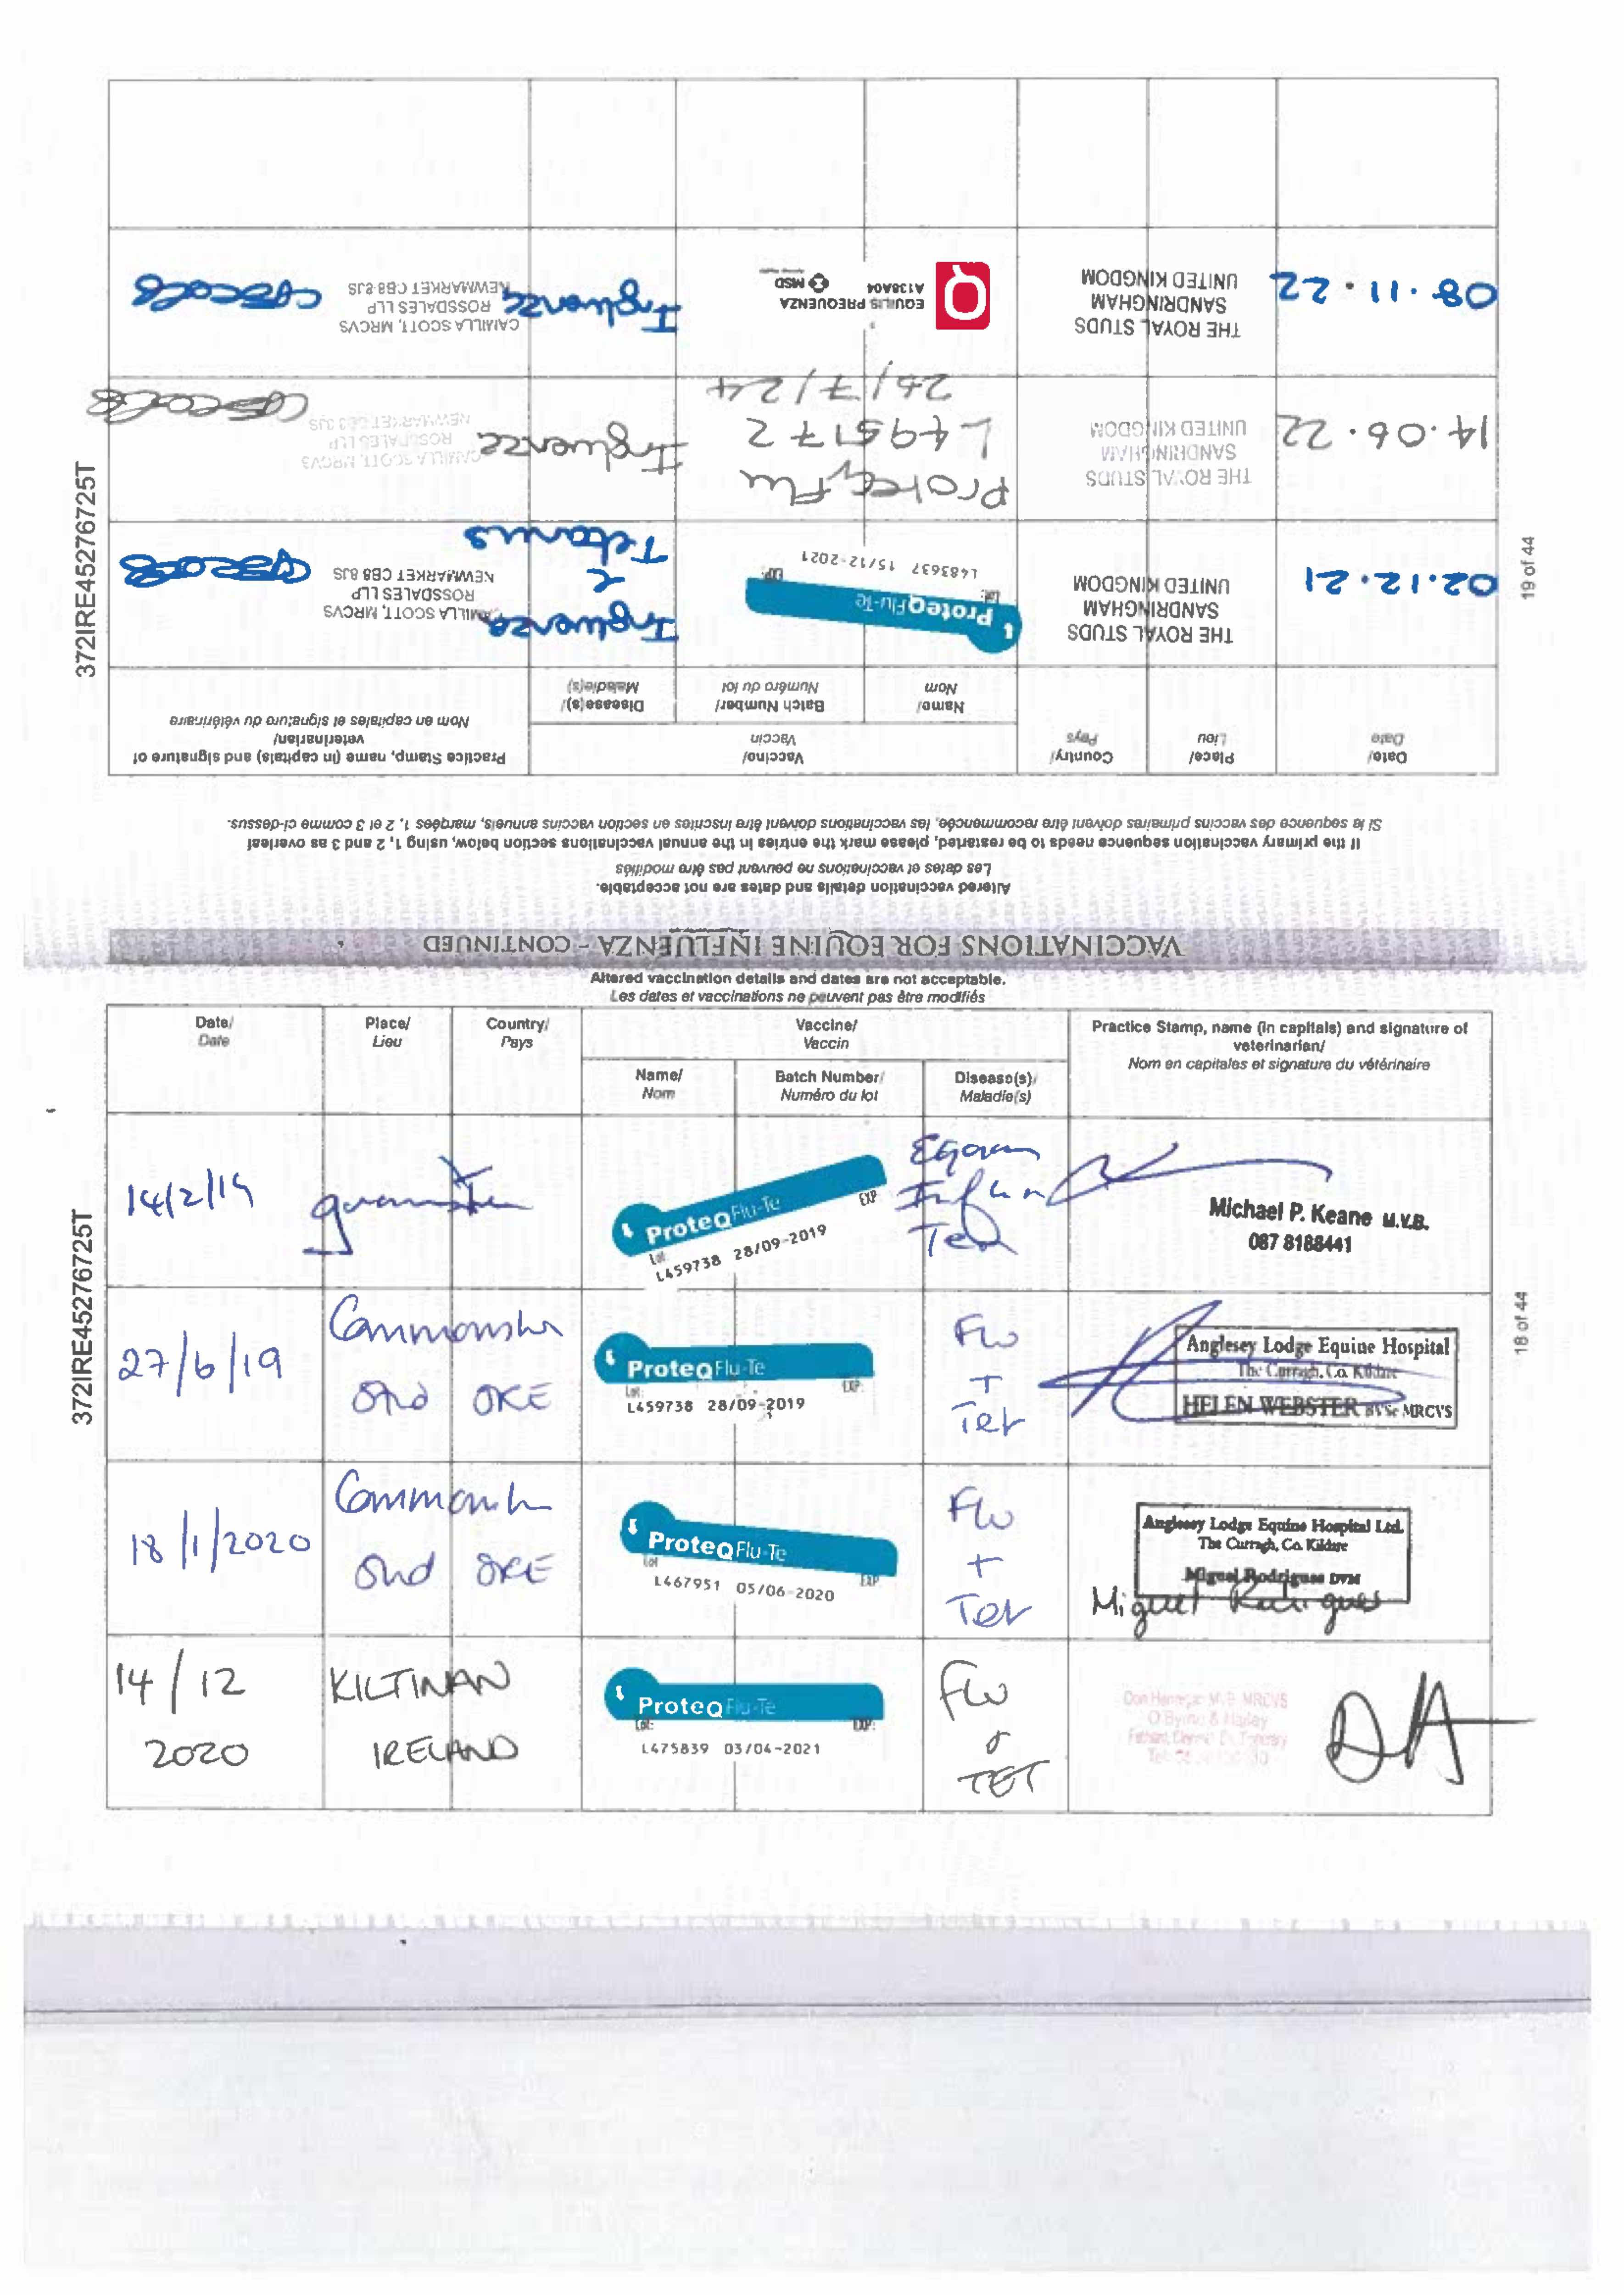 19 of 44
372IRE4527671725T
VACCINATIONS FOR EQUINE INFLUENZA - CONTINUED
Altered vaccination details and dates are not acceptable.
Les dates et vaccinations ne peuvent pas être modifiés
If the primary vaccination sequence needs to be restarted, please mark the entries in the annual vaccinations section below, using 1, 2 and 3 as overleaf
Si la séquence des vaccins primaires doivent être recommencée, les vaccinations doivent être inscrites en section vaccins annuels, marqées 1, 2 et 3 comme ci-dessus.
Date/
Date
Place/
Lieu
Country/
Pays
Vaccine/
Vaccin
Name/
Nom
Batch Number/
Numéro du lot
Disease(s)/
Maladie(s)
Practice Stamp, name (in capitals) and signature of
veterinarian/
Nom en capitales et signature du vétérinaire
02.12.21
THE ROYAL STUDS
SANDRINGHAM
UNITED KINGDOM
ProteqFlu-Te
Lot: EXP:
L483637 15/12-2021
Influenza
&
Tetanus
CAMILLA SCOTT, MRCVS
ROSSDALES LLP
NEWMARKET CB8 8JS
14.06.22
THE ROYAL STUDS
SANDRINGHAM
UNITED KINGDOM
Proteq Flu
L495172
25/7/24
Influenza
CAMILLA SCOTT, MRCVS
ROSSDALES LLP
NEWMARKET CB8 8JS
08.11.22
THE ROYAL STUDS
SANDRINGHAM
UNITED KINGDOM
EQUILIS PREQUENZA
A138A04
MSD
Influenza
CAMILLA SCOTT, MRCVS
ROSSDALES LLP
NEWMARKET CB8 8JS
Altered vaccination details and dates are not acceptable.
Les dates et vaccinations ne peuvent pas être modifiés
372IRE452767725T
18 of 44
Date/
Date
Place/
Lieu
Country/
Pays
Vaccine/
Vaccin
Name/
Nom
Batch Number/
Numéro du lot
Disease(s)/
Maladie(s)
Practice Stamp, name (in capitals) and signature of
veterinarian/
Nom en capitales et signature du vétérinaire
14/2/19
ProteqFlu-Te
Lot EXP
L459738 28/09-2019
Michael P. Keane M.V.B.
087 8188441
27/6/19
Stud
ProteqFlu-Te
Lot: EXP:
L459738 28/09-2019
Flu
+
Tet
Anglesey Lodge Equine Hospital
The Curragh, Co. Kildare
HELEN WEBSTER BVSc MRCVS
18/1/2020
Stud
ProteqFlu-Te
Lot EXP
L467951 05/06-2020
Flu
+
Tet
Anglesey Lodge Equine Hospital Ltd.
The Curragh, Co. Kildare
Miguel Rodrigues DVM
Miguel Rodrigues
14/12
2020
KILTINAN
IRELAND
ProteqFlu-Te
Lot: EXP:
L475839 03/04-2021
Flu
&
TET